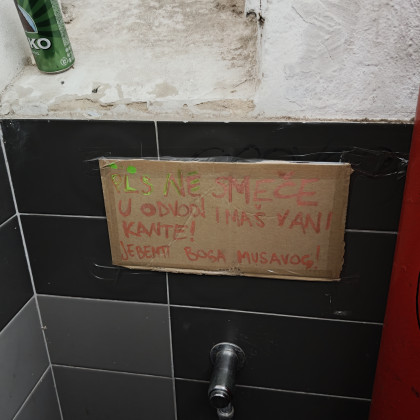 KO
PLS NE SMEČE
U ODVOD IMAŠ VANI
KANTE!
JEBEMTI BOGA MUSAVOG!